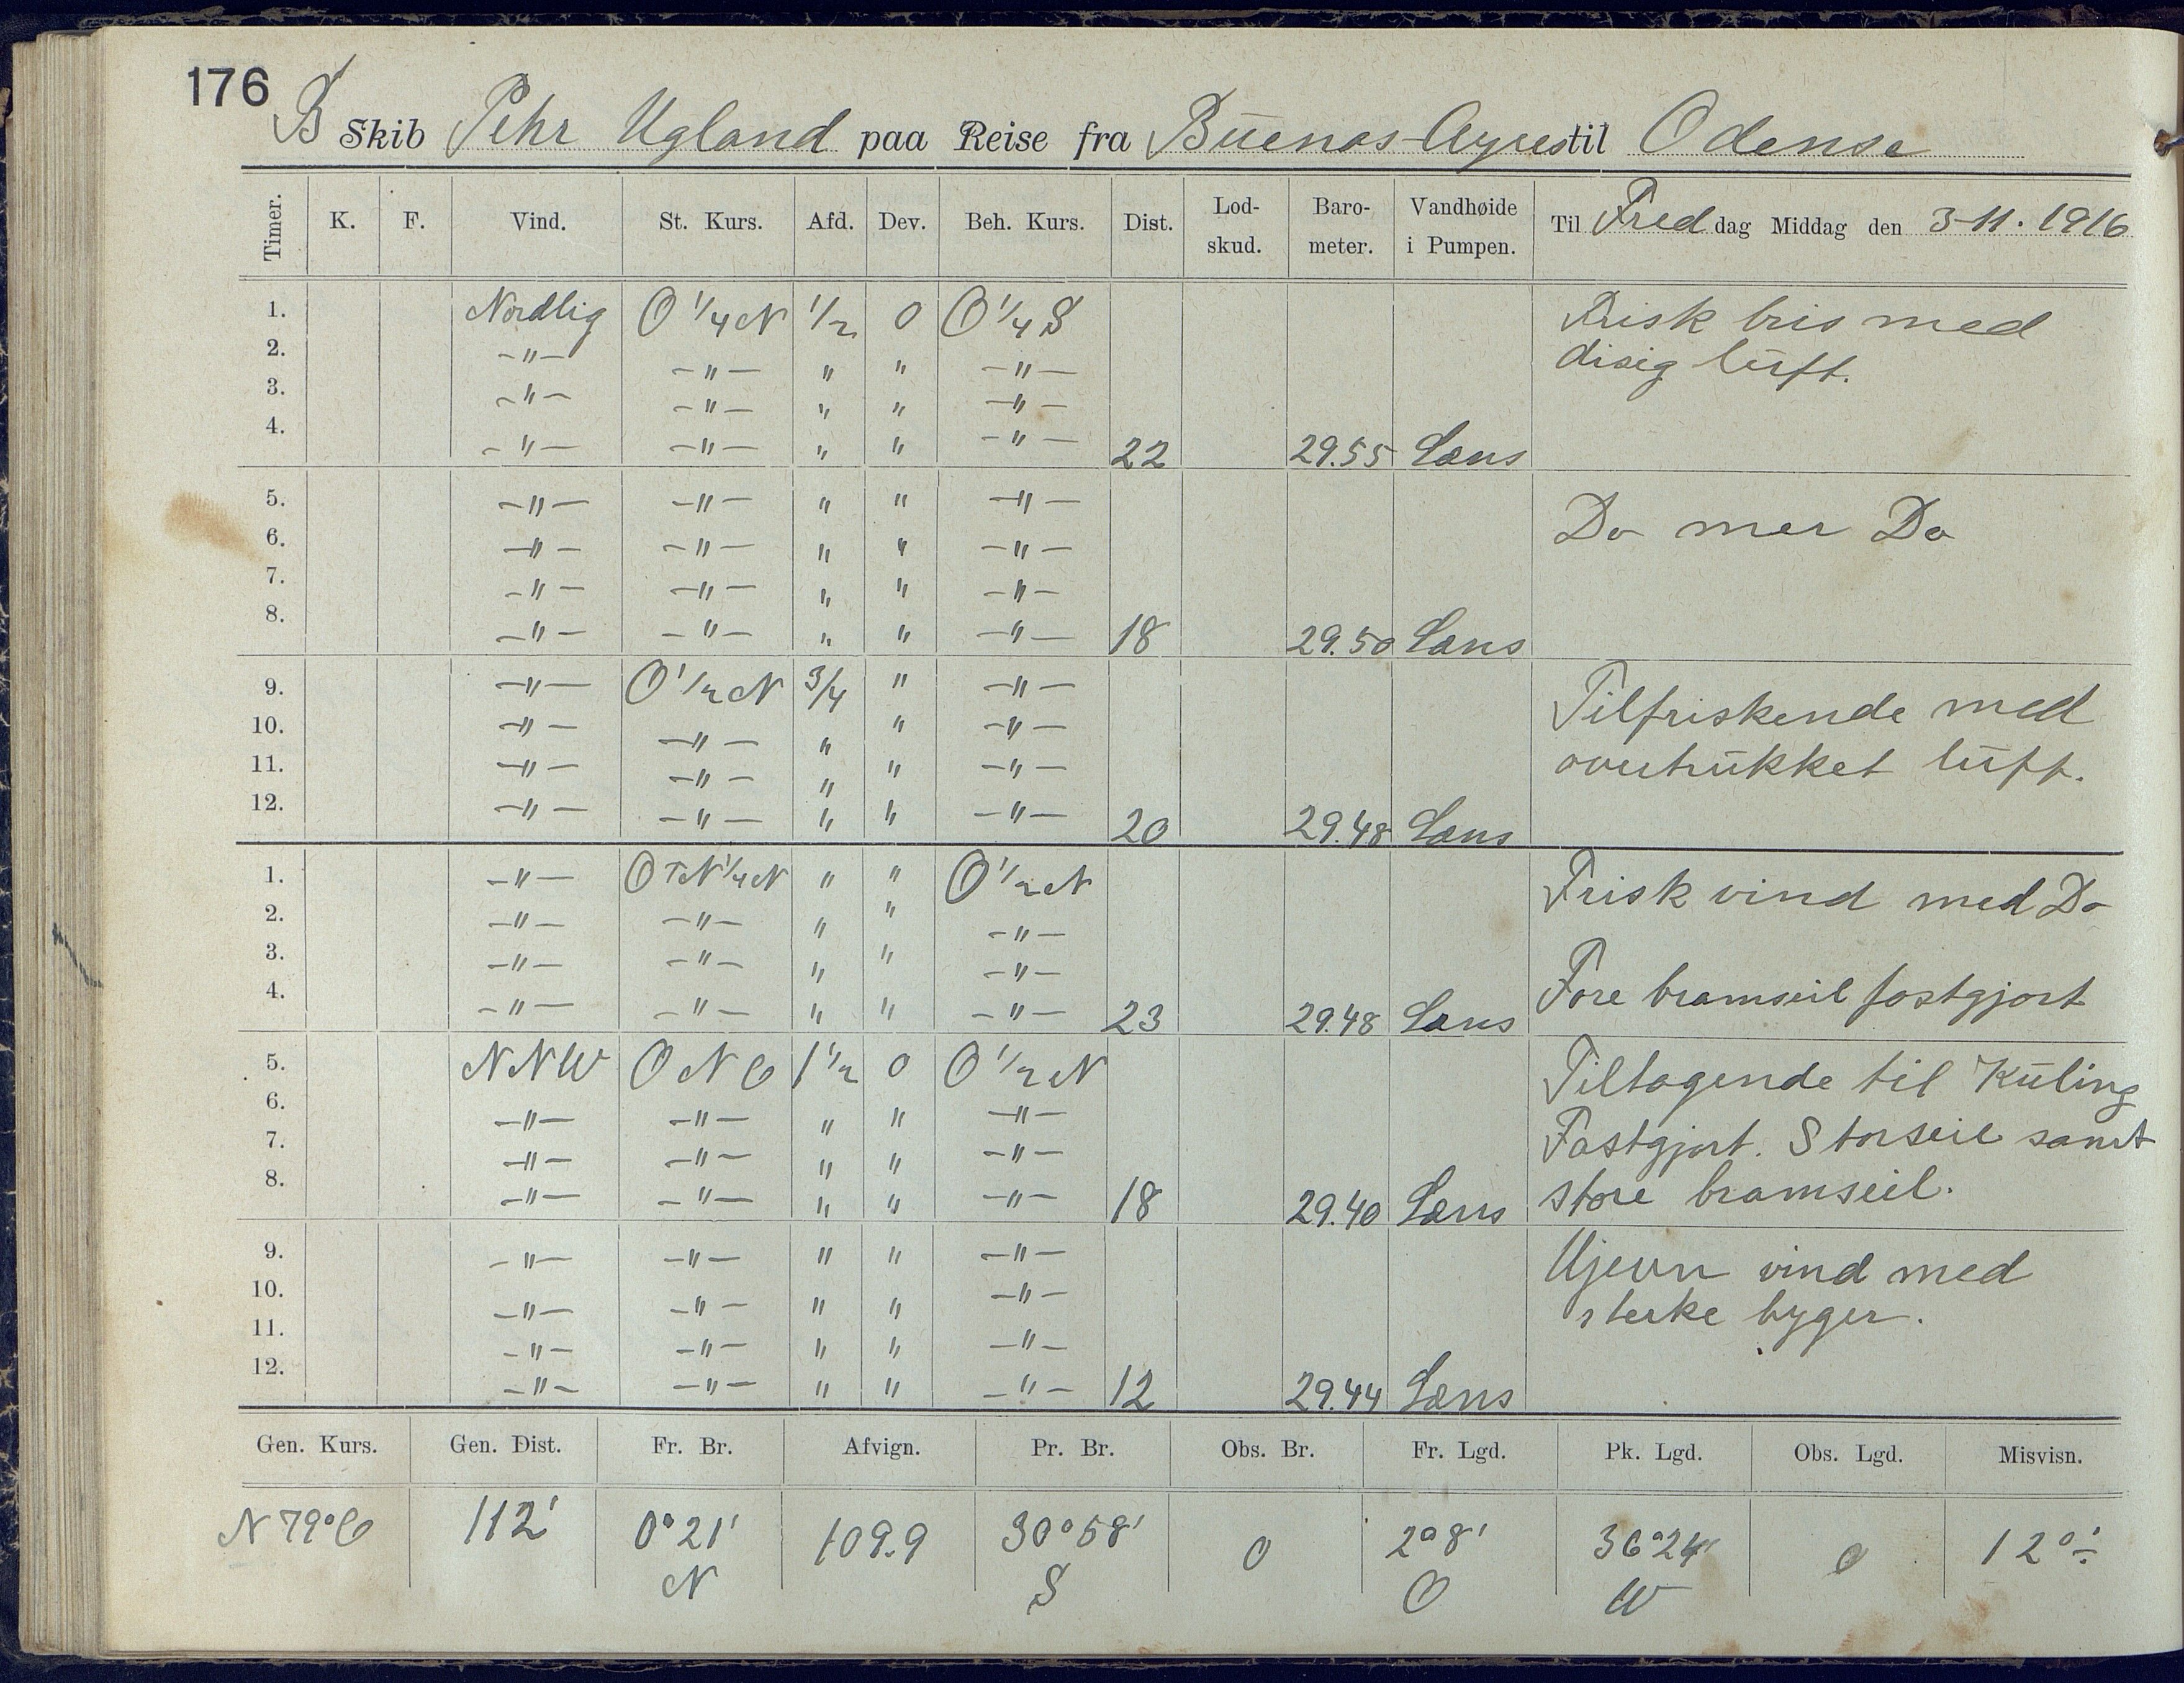 176
B Skib Pehr Ugland paa Reise fra Buenos-Ayres til Odense
Timer. K. F. Vind. St. Kurs. Afd. Dev. Beh. Kurs. Dist. Lod-skud. Baro-meter. Vandhøide i Pumpen. Til Freddag Middag den 3-11. 1916
1. Nordlig O 1/4 N 1/2 0 O 1/4 S Frisk bris med
2. -"- -"- " " -"- disig luft.
3. -"- -"- " " -"-
4. -"- -"- " " -"- 22 29.55 Læns
5. -"- -"- " " -"- Do mer Do
6. -"- -"- " " -"-
7. -"- -"- " " -"-
8. -"- -"- " " -"- 18 29.50 Læns
9. -"- O 1/2 N 3/4 " -"- Tilfriskende med
10. -"- -"- " " -"- overtrukket luft.
11. -"- -"- " " -"-
12. -"- -"- " " -"- 20 29.48 Læns
1. -"- OTN 1/4 N " " O 1/2 N Frisk vind med Do
2. -"- -"- " " -"-
3. -"- -"- " " -"- Fore bramseil fastgjort
4. -"- -"- " " -"- 23 29.48 Læns
5. NNW ONO 1 1/2 0 O 1/2 N Tiltagende til Kuling
6. -"- -"- " " -"- Fastgjort. Storseil samt
7. -"- -"- " " -"- store bramseil.
8. -"- -"- " " -"- 18 29.40 Læns
9. -"- -"- " " -"- Ujevn vind med
10. -"- -"- " " -"- sterke byger.
11. -"- -"- " " -"-
12. -"- -"- " " -"- 12 29.44 Læns
Gen. Kurs. Gen. Dist. Fr. Br. Afvign. Pr. Br. Obs. Br. Fr. Lgd. Pk. Lgd. Obs. Lgd. Misvisn.
N 79° O 112' 0° 21' 109.9 30° 58' 0 2° 8' 36° 24' 0 12° ÷
N S O W